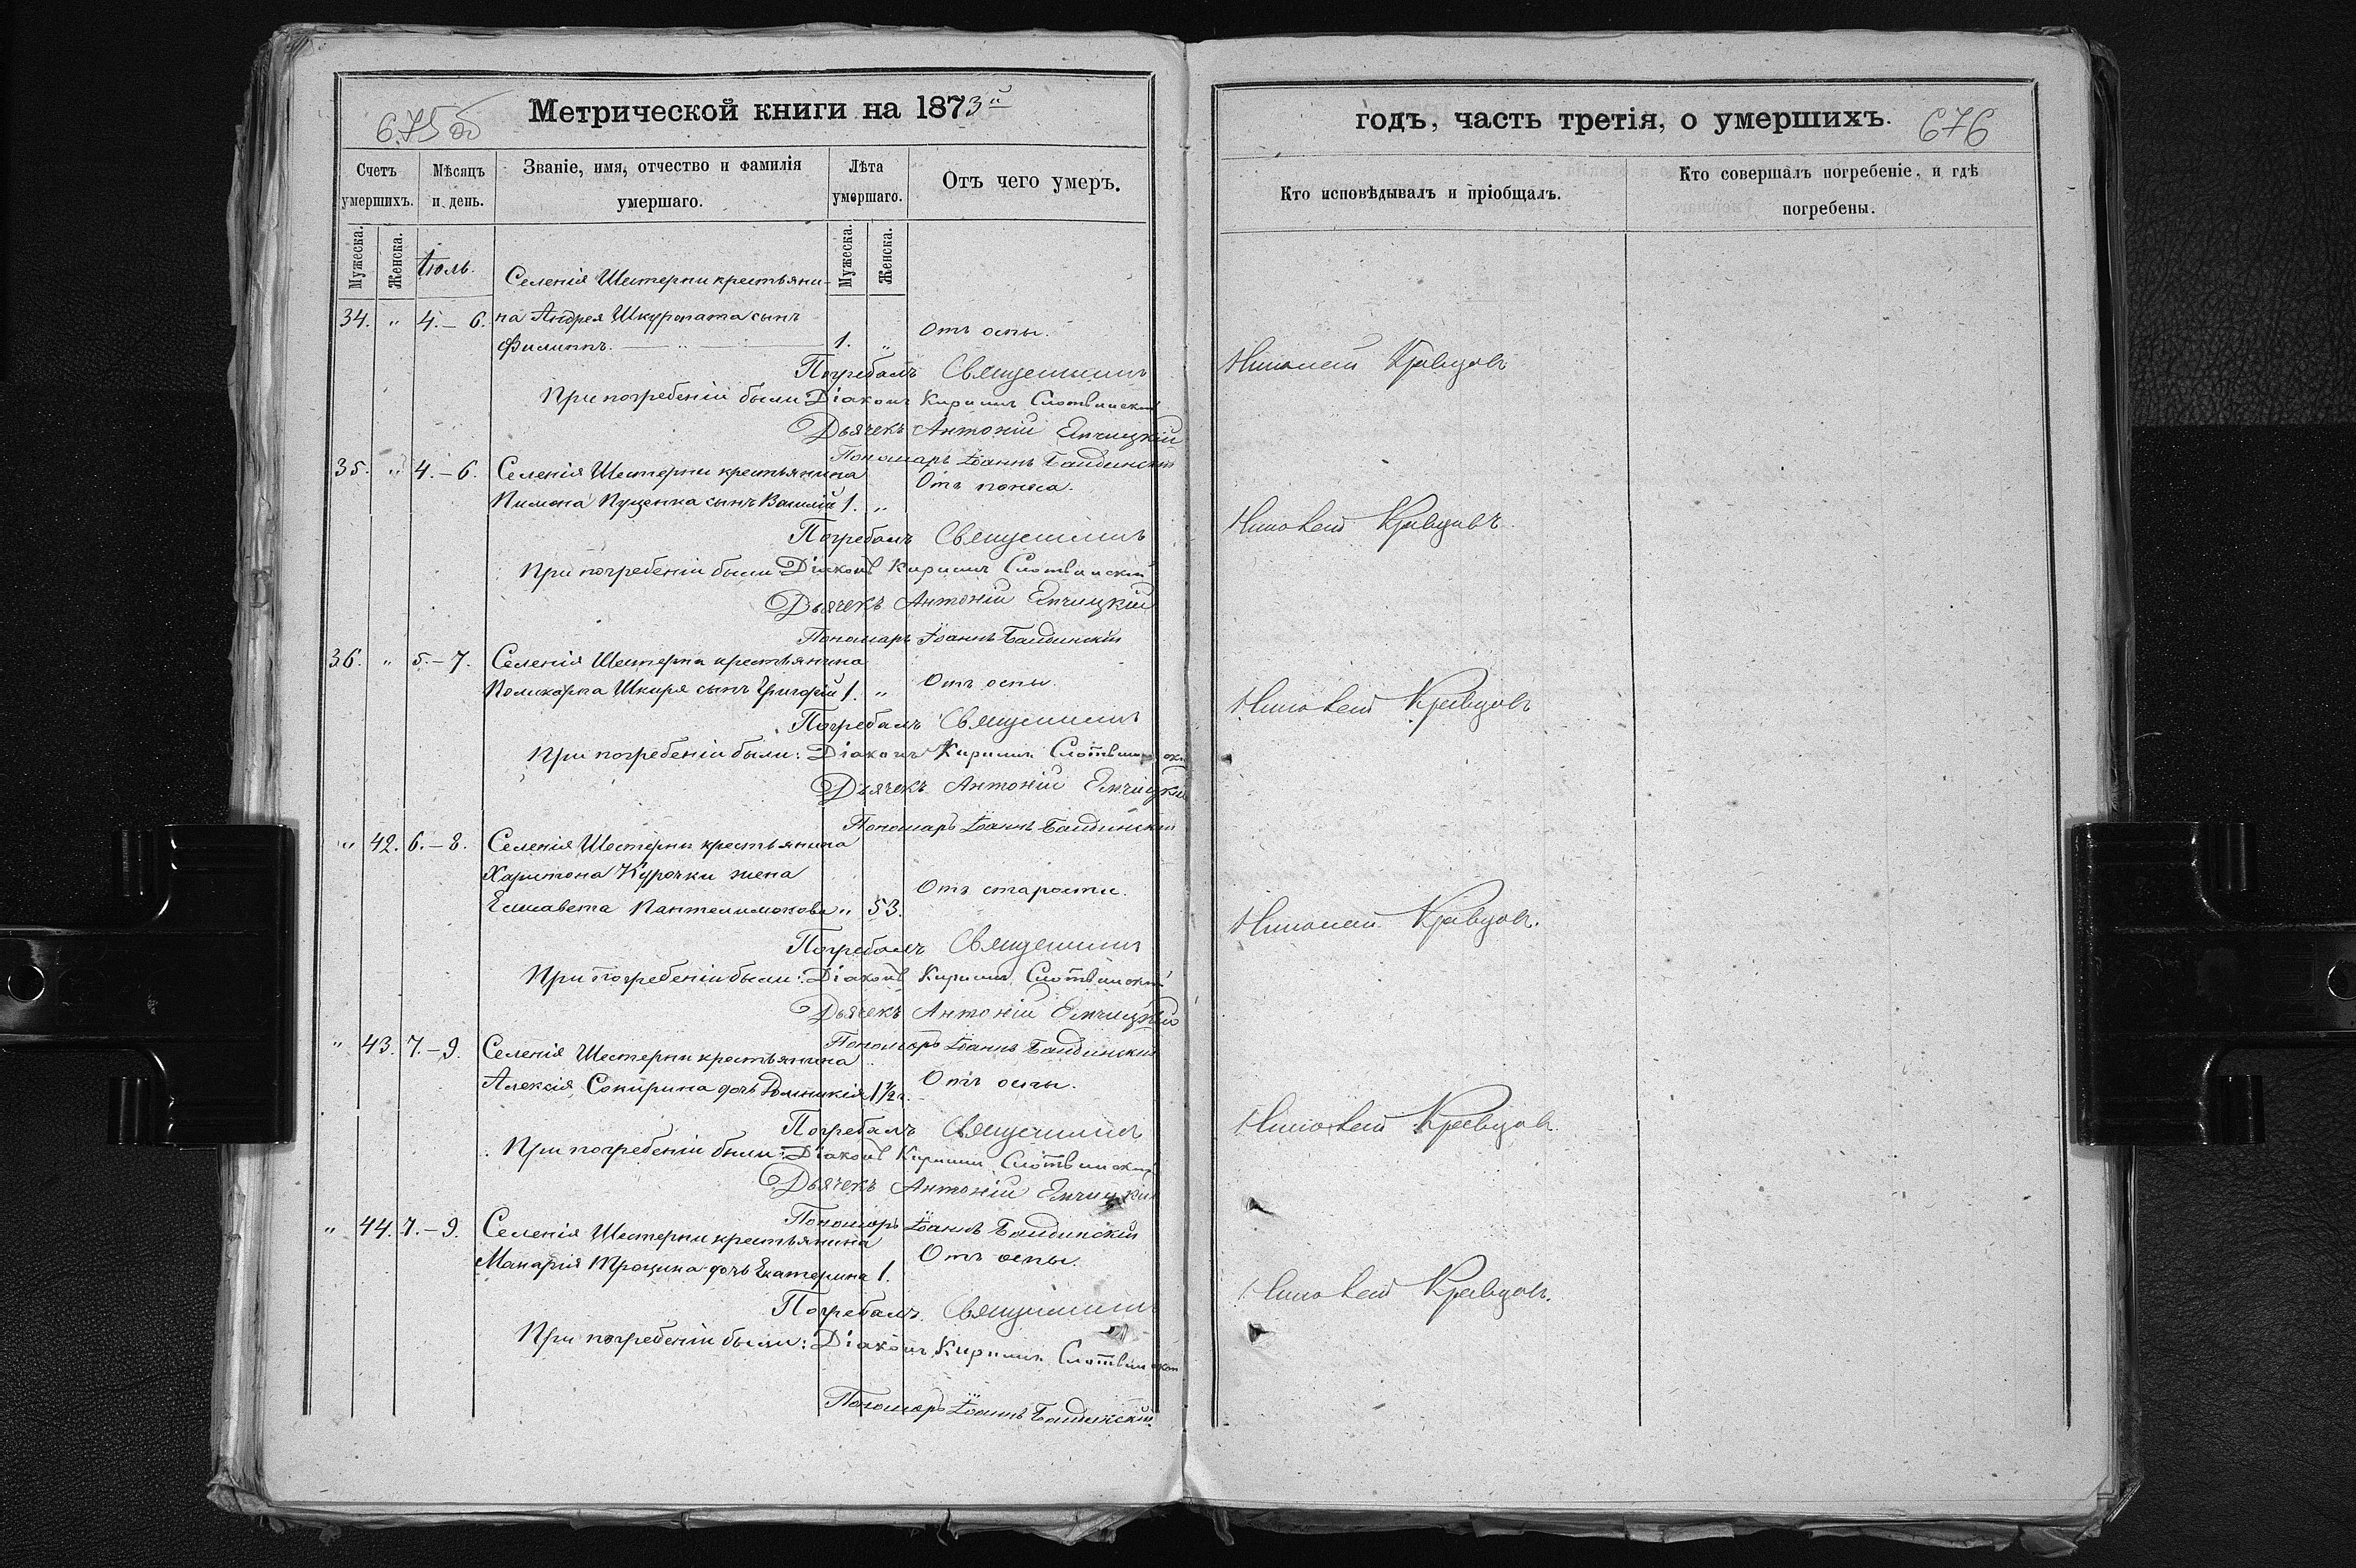 675 об
Метрической книги на 1873й
годъ, часть третія, о умершихъ.
676
Счетъ умершихъ.
Мѣсяцъ и день.
Званіе, имя, отчество и фамилія умершаго.
Лѣта умершаго.
Отъ чего умеръ.
Кто исповѣдывалъ и пріобщалъ.
Кто совершалъ погребеніе, и гдѣ погребены.
Мужеска.
Женска.
Іюль.
Мужеска.
Женска.
Селенія Шестерни крестьяни-
34. " 4.–6. на Андрея Шкуропата сынъ
Филиппъ. 1. " Отъ оспы.
Погребалъ Священникъ Николай Кравцовъ
При погребеніи были Діаконъ Кириллъ Слотвинскій
Дьячекъ Антоній Емчицкій
Пономарь Іоаннъ Бандинскій
35. " 4.–6. Селенія Шестерни крестьянина
Пимона Пущенка сынъ Василій 1. " Отъ поноса.
Погребалъ Священникъ Николай Кравцовъ.
При погребеніи были Діаконъ Кириллъ Слотвинскій
Дьячекъ Антоній Емчицкій
Пономарь Іоаннъ Бандинскій
36. " 5.–7. Селенія Шестерни крестьянина
Поликарпа Шкиря сынъ Григорій 1. " Отъ оспы.
Погребалъ Священникъ Николай Кравцовъ
При погребеніи были: Діаконъ Кириллъ Слотвинскій
Дьячекъ Антоній Емчицкій
Пономарь Іоаннъ Бандинскій
" 42. 6.–8. Селенія Шестерни крестьянина
Харитона Курочки жена
Елисавета Пантелимонова " 53. Отъ старости.
Погребалъ Священникъ Николай Кравцовъ.
При погребеніи были: Діаконъ Кириллъ Слотвинскій
Дьячекъ Антоній Емчицкій
Пономарь Іоаннъ Бандинскій
" 43. 7.–9. Селенія Шестерни крестьянина
Алексія Сокирина дочь Домникія 1½. Отъ оспы.
Погребалъ Священникъ Николай Кравцовъ.
При погребеніи были: Діаконъ Кириллъ Слотвинскій
Дьячекъ Антоній Емчицкій
Пономарь Іоаннъ Бандинскій
" 44. 7.–9. Селенія Шестерни крестьянина
Макарія Трощина дочь Екатерина 1. Отъ оспы.
Погребалъ Священникъ Николай Кравцовъ.
При погребеніи были: Діаконъ Кириллъ Слотвинскій
Пономарь Іоаннъ Бандинскій